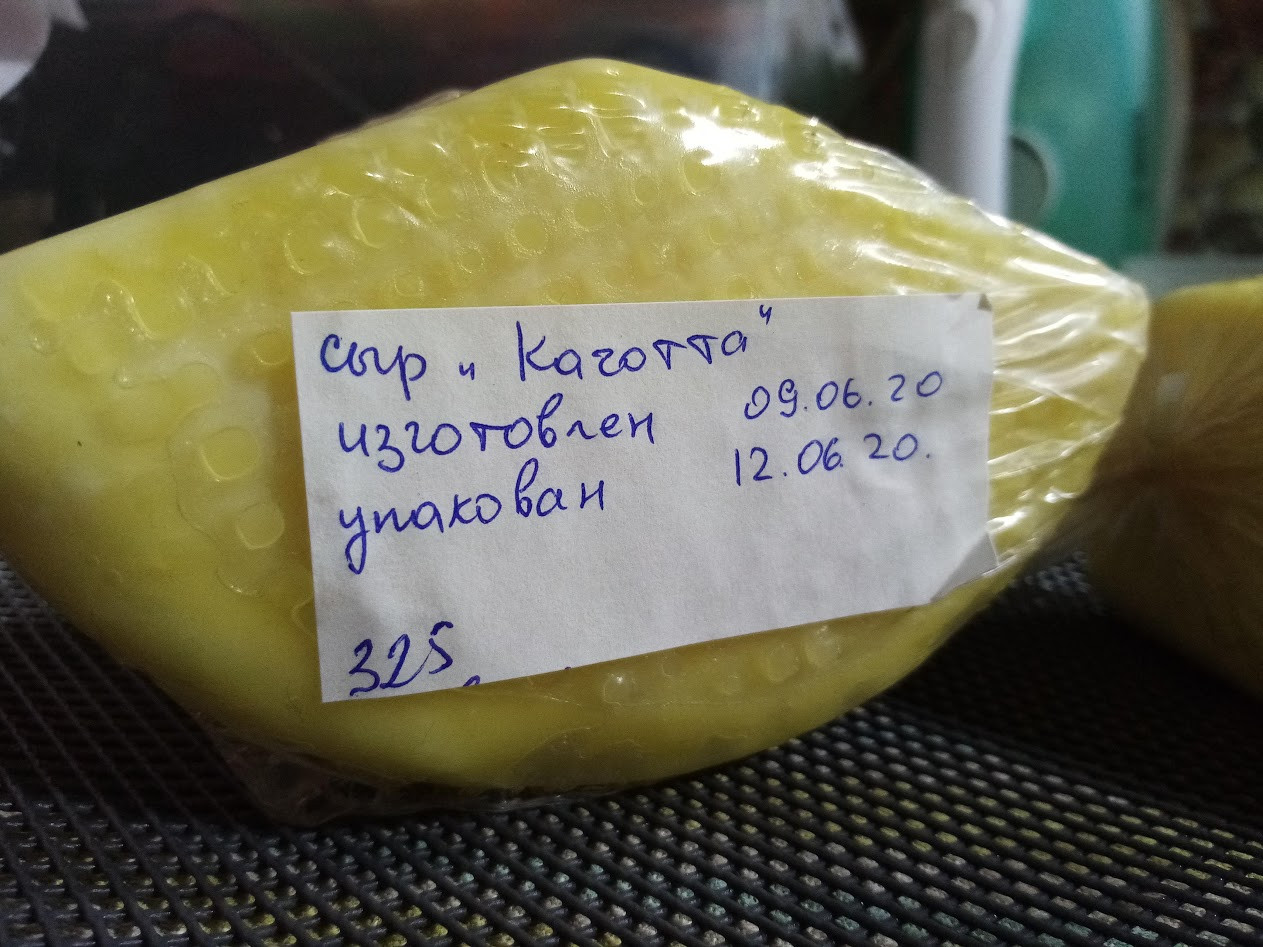 сыр „Качотта"
изготовлен 09.06.20
упакован 12.06.20.
325